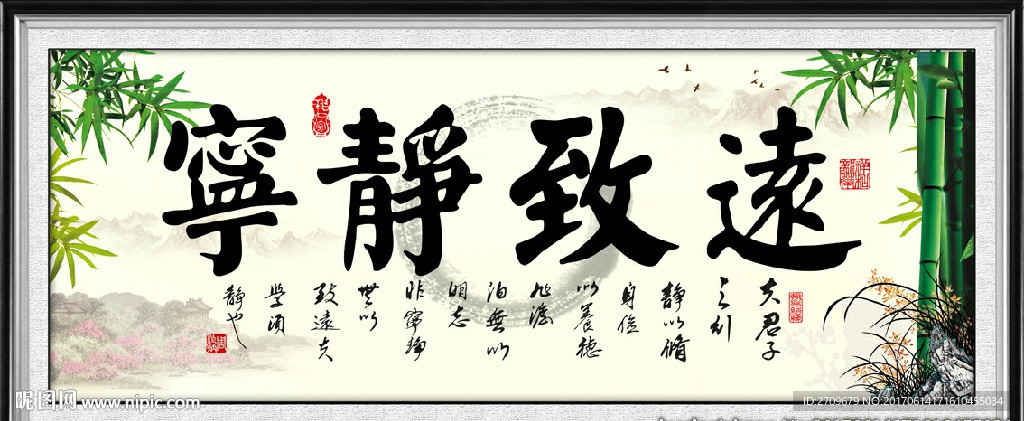 寧靜致遠
夫君子
之行
静以脩
身儉
以養德
非澹
泊無以
明志
非寧静
無以
致遠夫
學須
静也
昵图网 www.nipic.com
ID:2709679 NO:20170614171610455034